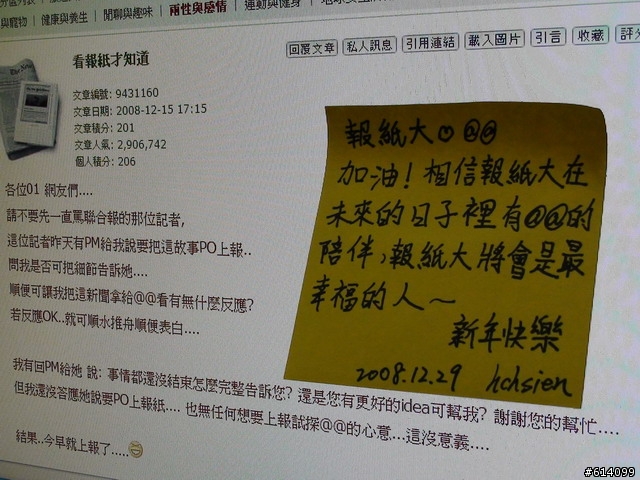 與寵物 | 健康與養生 | 閒聊與趣味 | 兩性與感情 | 運動與健身
回覆文章 私人訊息 引用連結 載入圖片 引言 收藏 評分
看報紙才知道
文章編號: 9431160
文章日期: 2008-12-15 17:15
文章積分: 201
文章人氣: 2,906,742
個人積分: 206
各位01 網友們....
請不要先一直罵聯合報的那位記者,
這位記者昨天有PM給我說要把這故事PO上報..
問我是否可把細節告訴她....
順便可讓我把這新聞拿給@@看有無什麼反應?
若反應OK..就可順水推舟順便表白....
我有回PM給她 說: 事情都還沒結束怎麼完整告訴您? 還是您有更好的idea可幫我? 謝謝您的幫忙....
但我還沒答應她說要PO上報紙.... 也無任何想要上報試探@@的心意...這沒意義....
結果..今早就上報了.....
報紙大♡@@
加油!相信報紙大在
未來的日子裡有@@的
陪伴,報紙大將會是最
幸福的人~
新年快樂
2008.12.29 hchsien
#614099